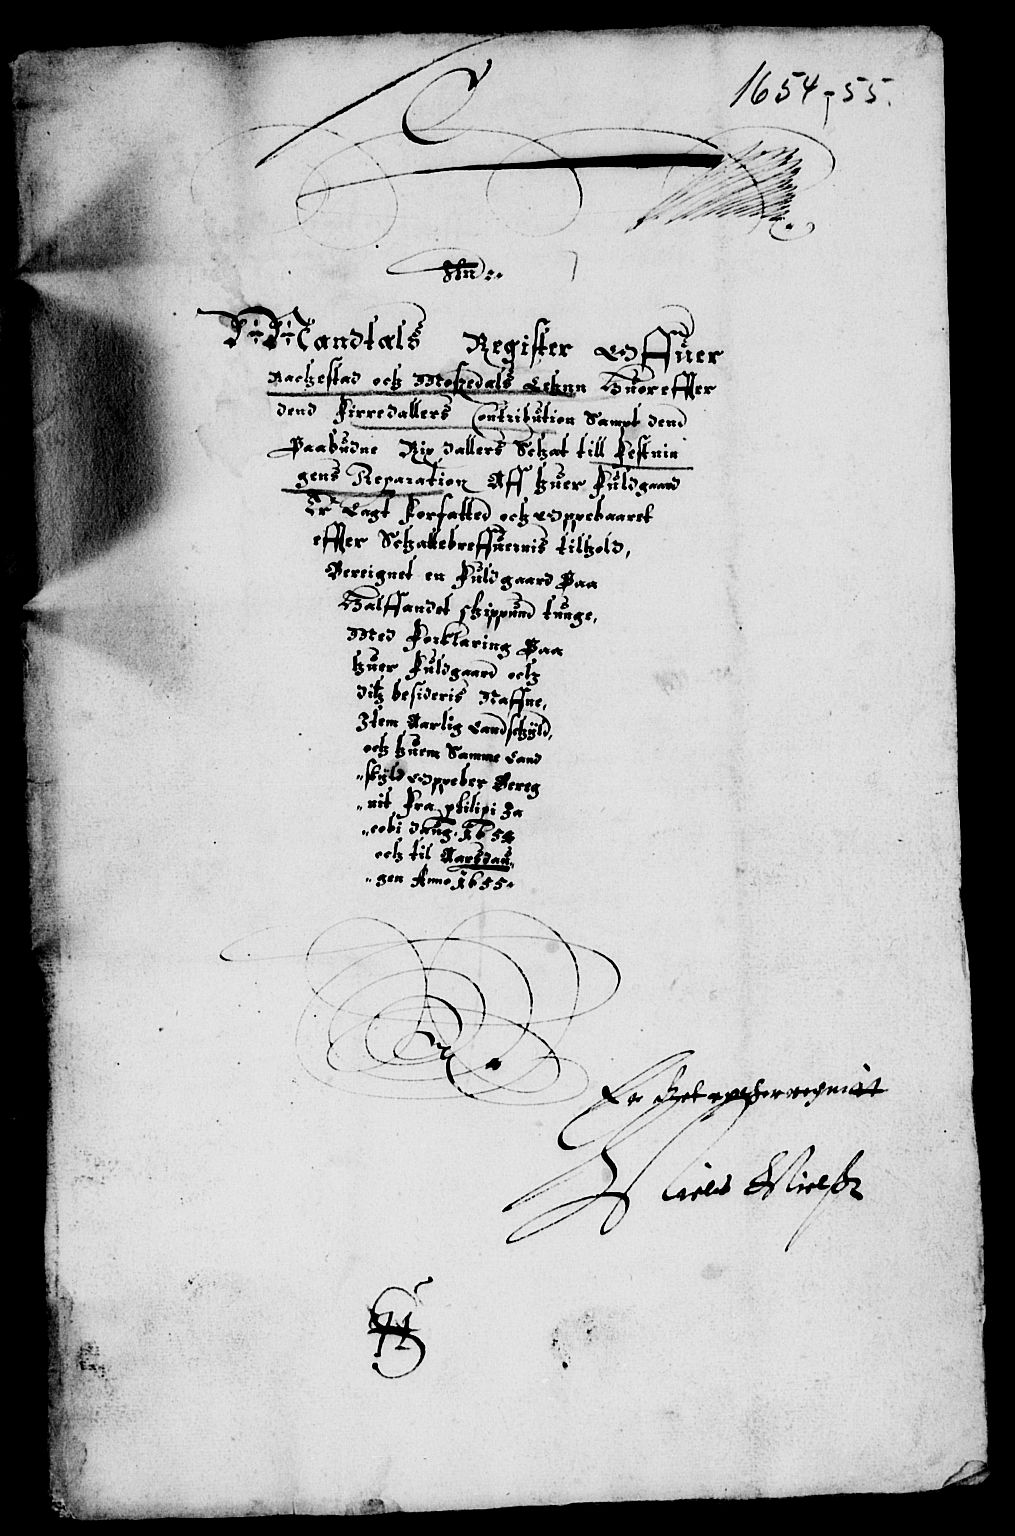 1654-55.
Itt
Mandtals Register Offuer
Rachestad och Mossedals Lehnn Huoreffter
dend Firredallers Contribution Sampt dend
Paabudne Rix dallers Schat till Festnin
gens Reparation Aff huer Fuldgaard
Er Lagt Forfatted och Oppebaaret
effter Schattebreffuernis tilhold,
Bereignet en Fuldgaard Paa
Halffandet skippund tunge,
Med Forklaring Paa
huer Fuldgaard och
ditz besideris Naffne,
Item Aarlig Landschyld,
och huem Samme Land
„skyld Oppeber Bereg
„nit Fra philipi Ja
„cobi daug. 1654
och til Aarsdau„
„gen Anno 1655.
Niels Nielsen